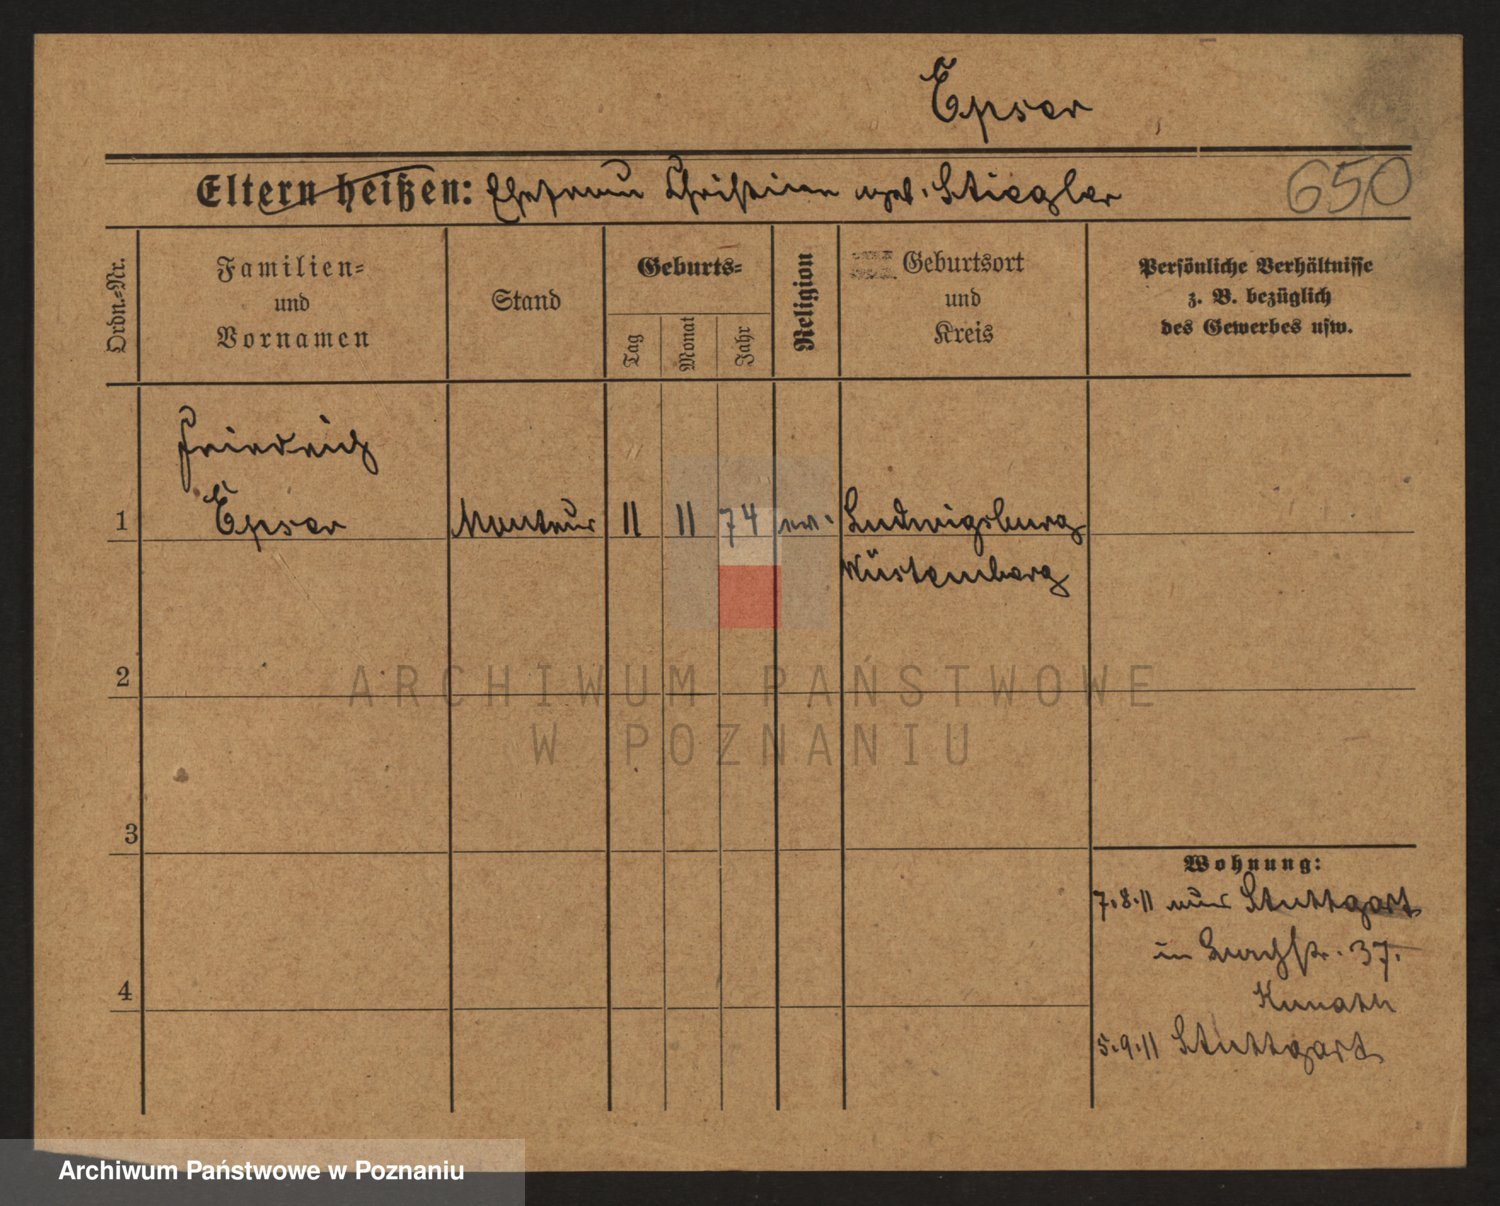 Epser
Eltern heißen: Ehefrau Christine geb. Stiegler
650
Ordn.-Nr.
Familien-
und
Vornamen
Stand
Geburts-
Tag
Monat
Jahr
Religion
Geburtsort
und
Kreis
Persönliche Verhältnisse
z. B. bezüglich
des Gewerbes usw.
Friedrich
1 Epser Monteur 11 11 74 ev. Ludwigsburg
Württemberg
2
ARCHIWUM PAŃSTWOWE
W POZNANIU
3
Wohnung:
7.8.11 aus Stuttgart
in 37.
4
5.9.11 Stuttgart
Archiwum Państwowe w Poznaniu